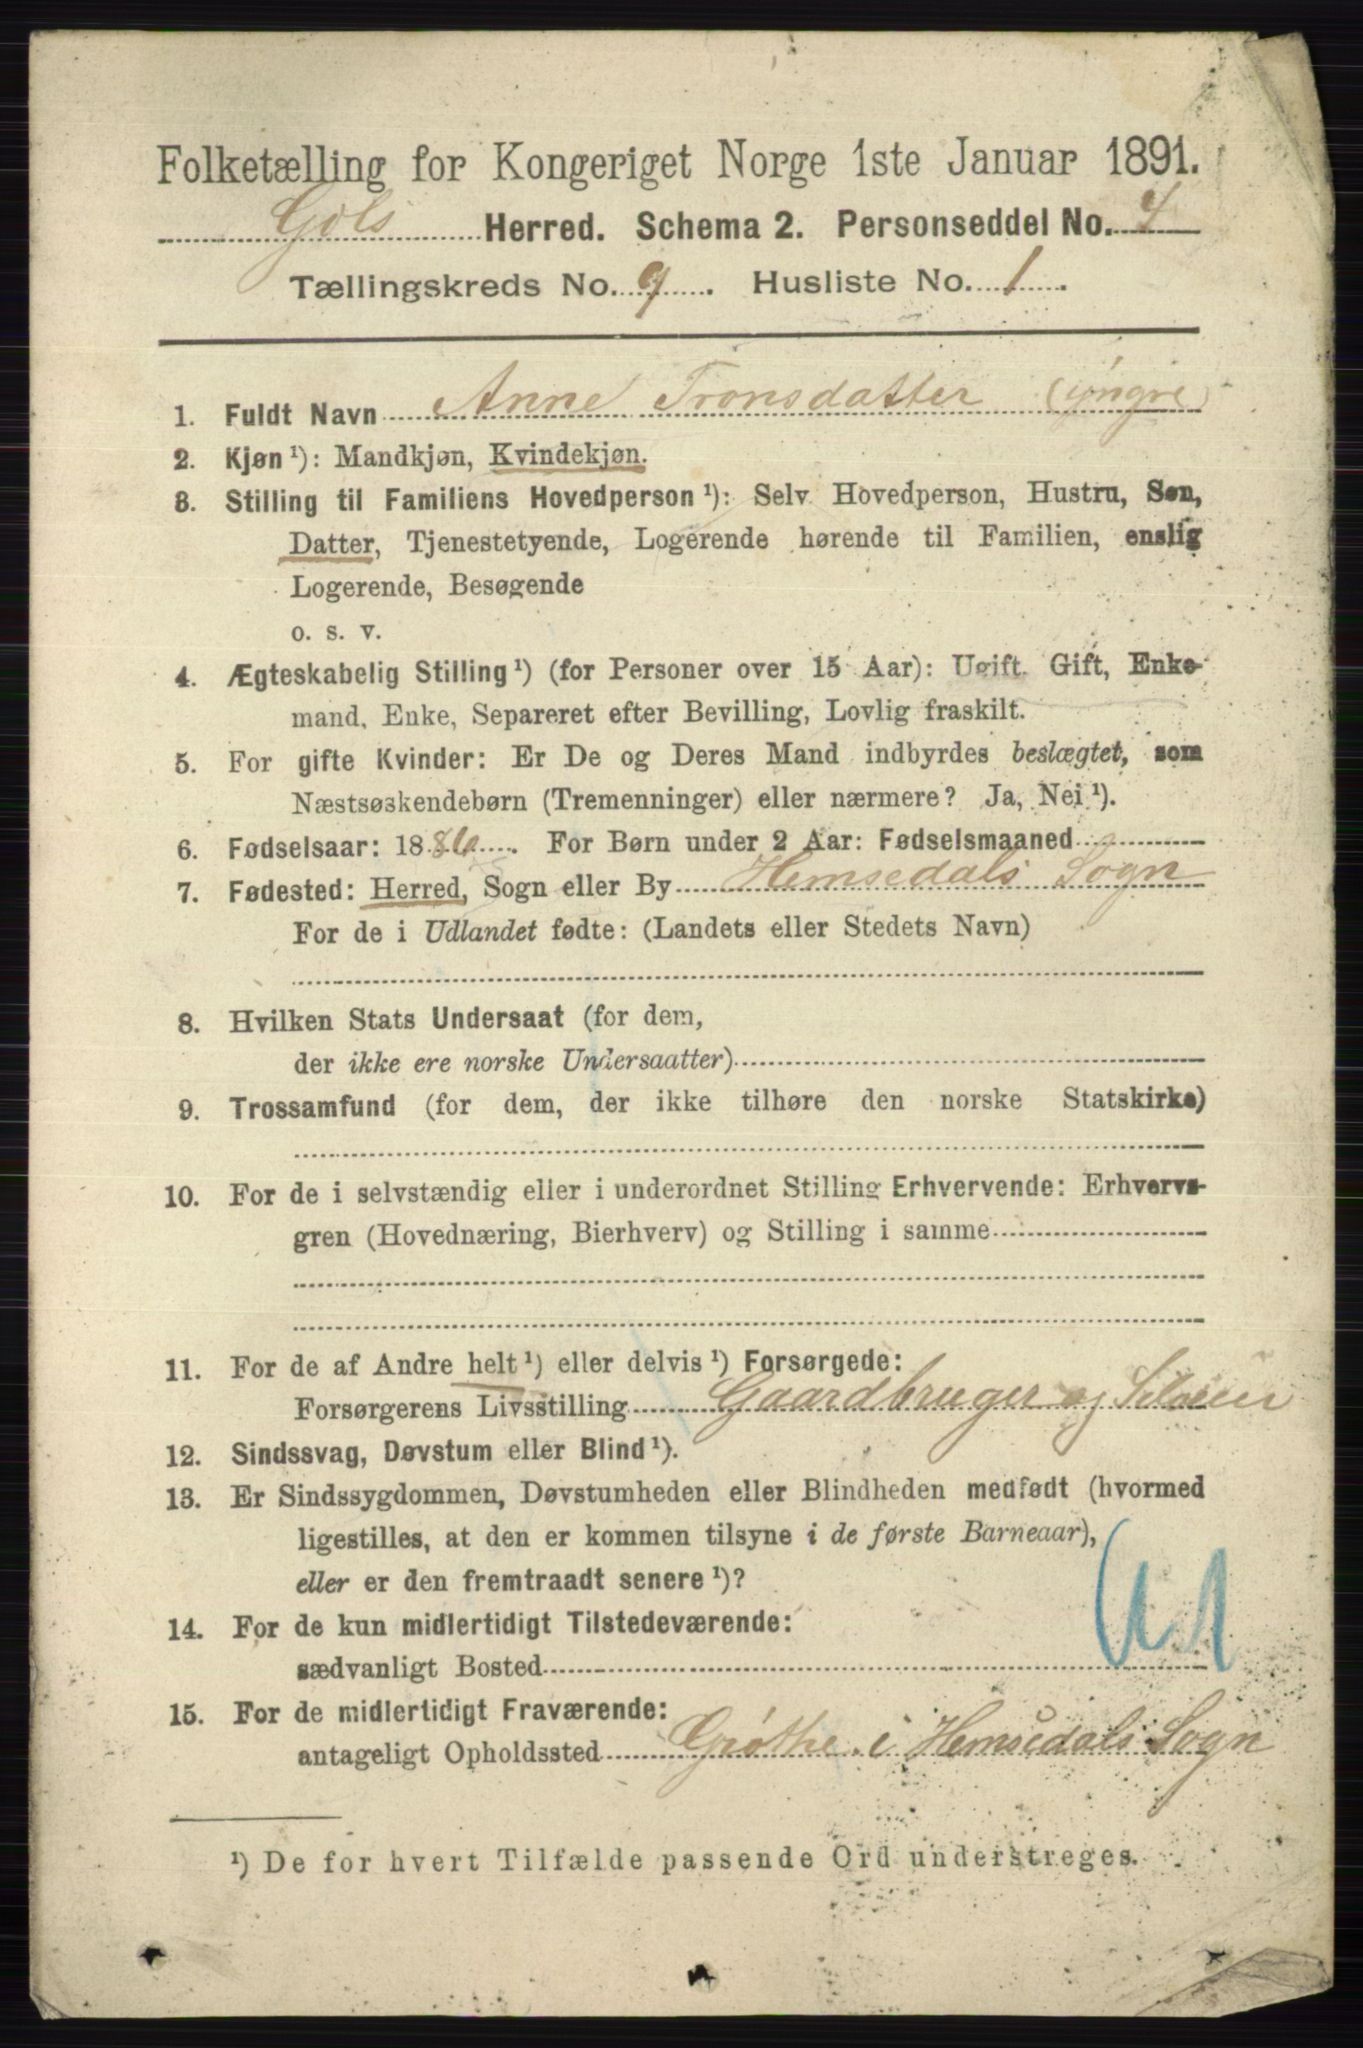 Folketælling for Kongeriget Norge 1ste Januar 1891.
Gols Herred. Schema 2. Personseddel No. 4
Tællingskreds No. 9. Husliste No. 1.
1. Fuldt Navn Anne Tronsdatter (yngre)
2. Kjøn ¹): Mandkjøn, Kvindekjøn.
3. Stilling til Familiens Hovedperson ¹): Selv Hovedperson, Hustru, Søn,
Datter, Tjenestetyende, Logerende hørende til Familien, enslig
Logerende, Besøgende
o. s. v.
4. Ægteskabelig Stilling ¹) (for Personer over 15 Aar): Ugift. Gift, Enke-
mand, Enke, Separeret efter Bevilling, Lovlig fraskilt.
5. For gifte Kvinder: Er De og Deres Mand indbyrdes beslægtet, som
Næstsøskendebørn (Tremenninger) eller nærmere? Ja, Nei ¹).
6. Fødselsaar: 1886. For Børn under 2 Aar: Fødselsmaaned
7. Fødested: Herred, Sogn eller By Hemsedals Sogn
For de i Udlandet fødte: (Landets eller Stedets Navn)
8. Hvilken Stats Undersaat (for dem,
der ikke ere norske Undersaatter)
9. Trossamfund (for dem, der ikke tilhøre den norske Statskirke)
10. For de i selvstændig eller i underordnet Stilling Erhvervende: Erhvervs-
gren (Hovednæring, Bierhverv) og Stilling i samme
11. For de af Andre helt ¹) eller delvis ¹) Forsørgede:
Forsørgerens Livsstilling Gaardbruger og Selveier
12. Sindssvag, Døvstum eller Blind ¹).
13. Er Sindssygdommen, Døvstumheden eller Blindheden medfødt (hvormed
ligestilles, at den er kommen tilsyne i de første Barneaar),
eller er den fremtraadt senere ¹)?
14. For de kun midlertidigt Tilstedeværende:
sædvanligt Bosted
15. For de midlertidigt Fraværende:
antageligt Opholdssted Grøthe i Hemsedals Sogn
¹) De for hvert Tilfælde passende Ord understreges.